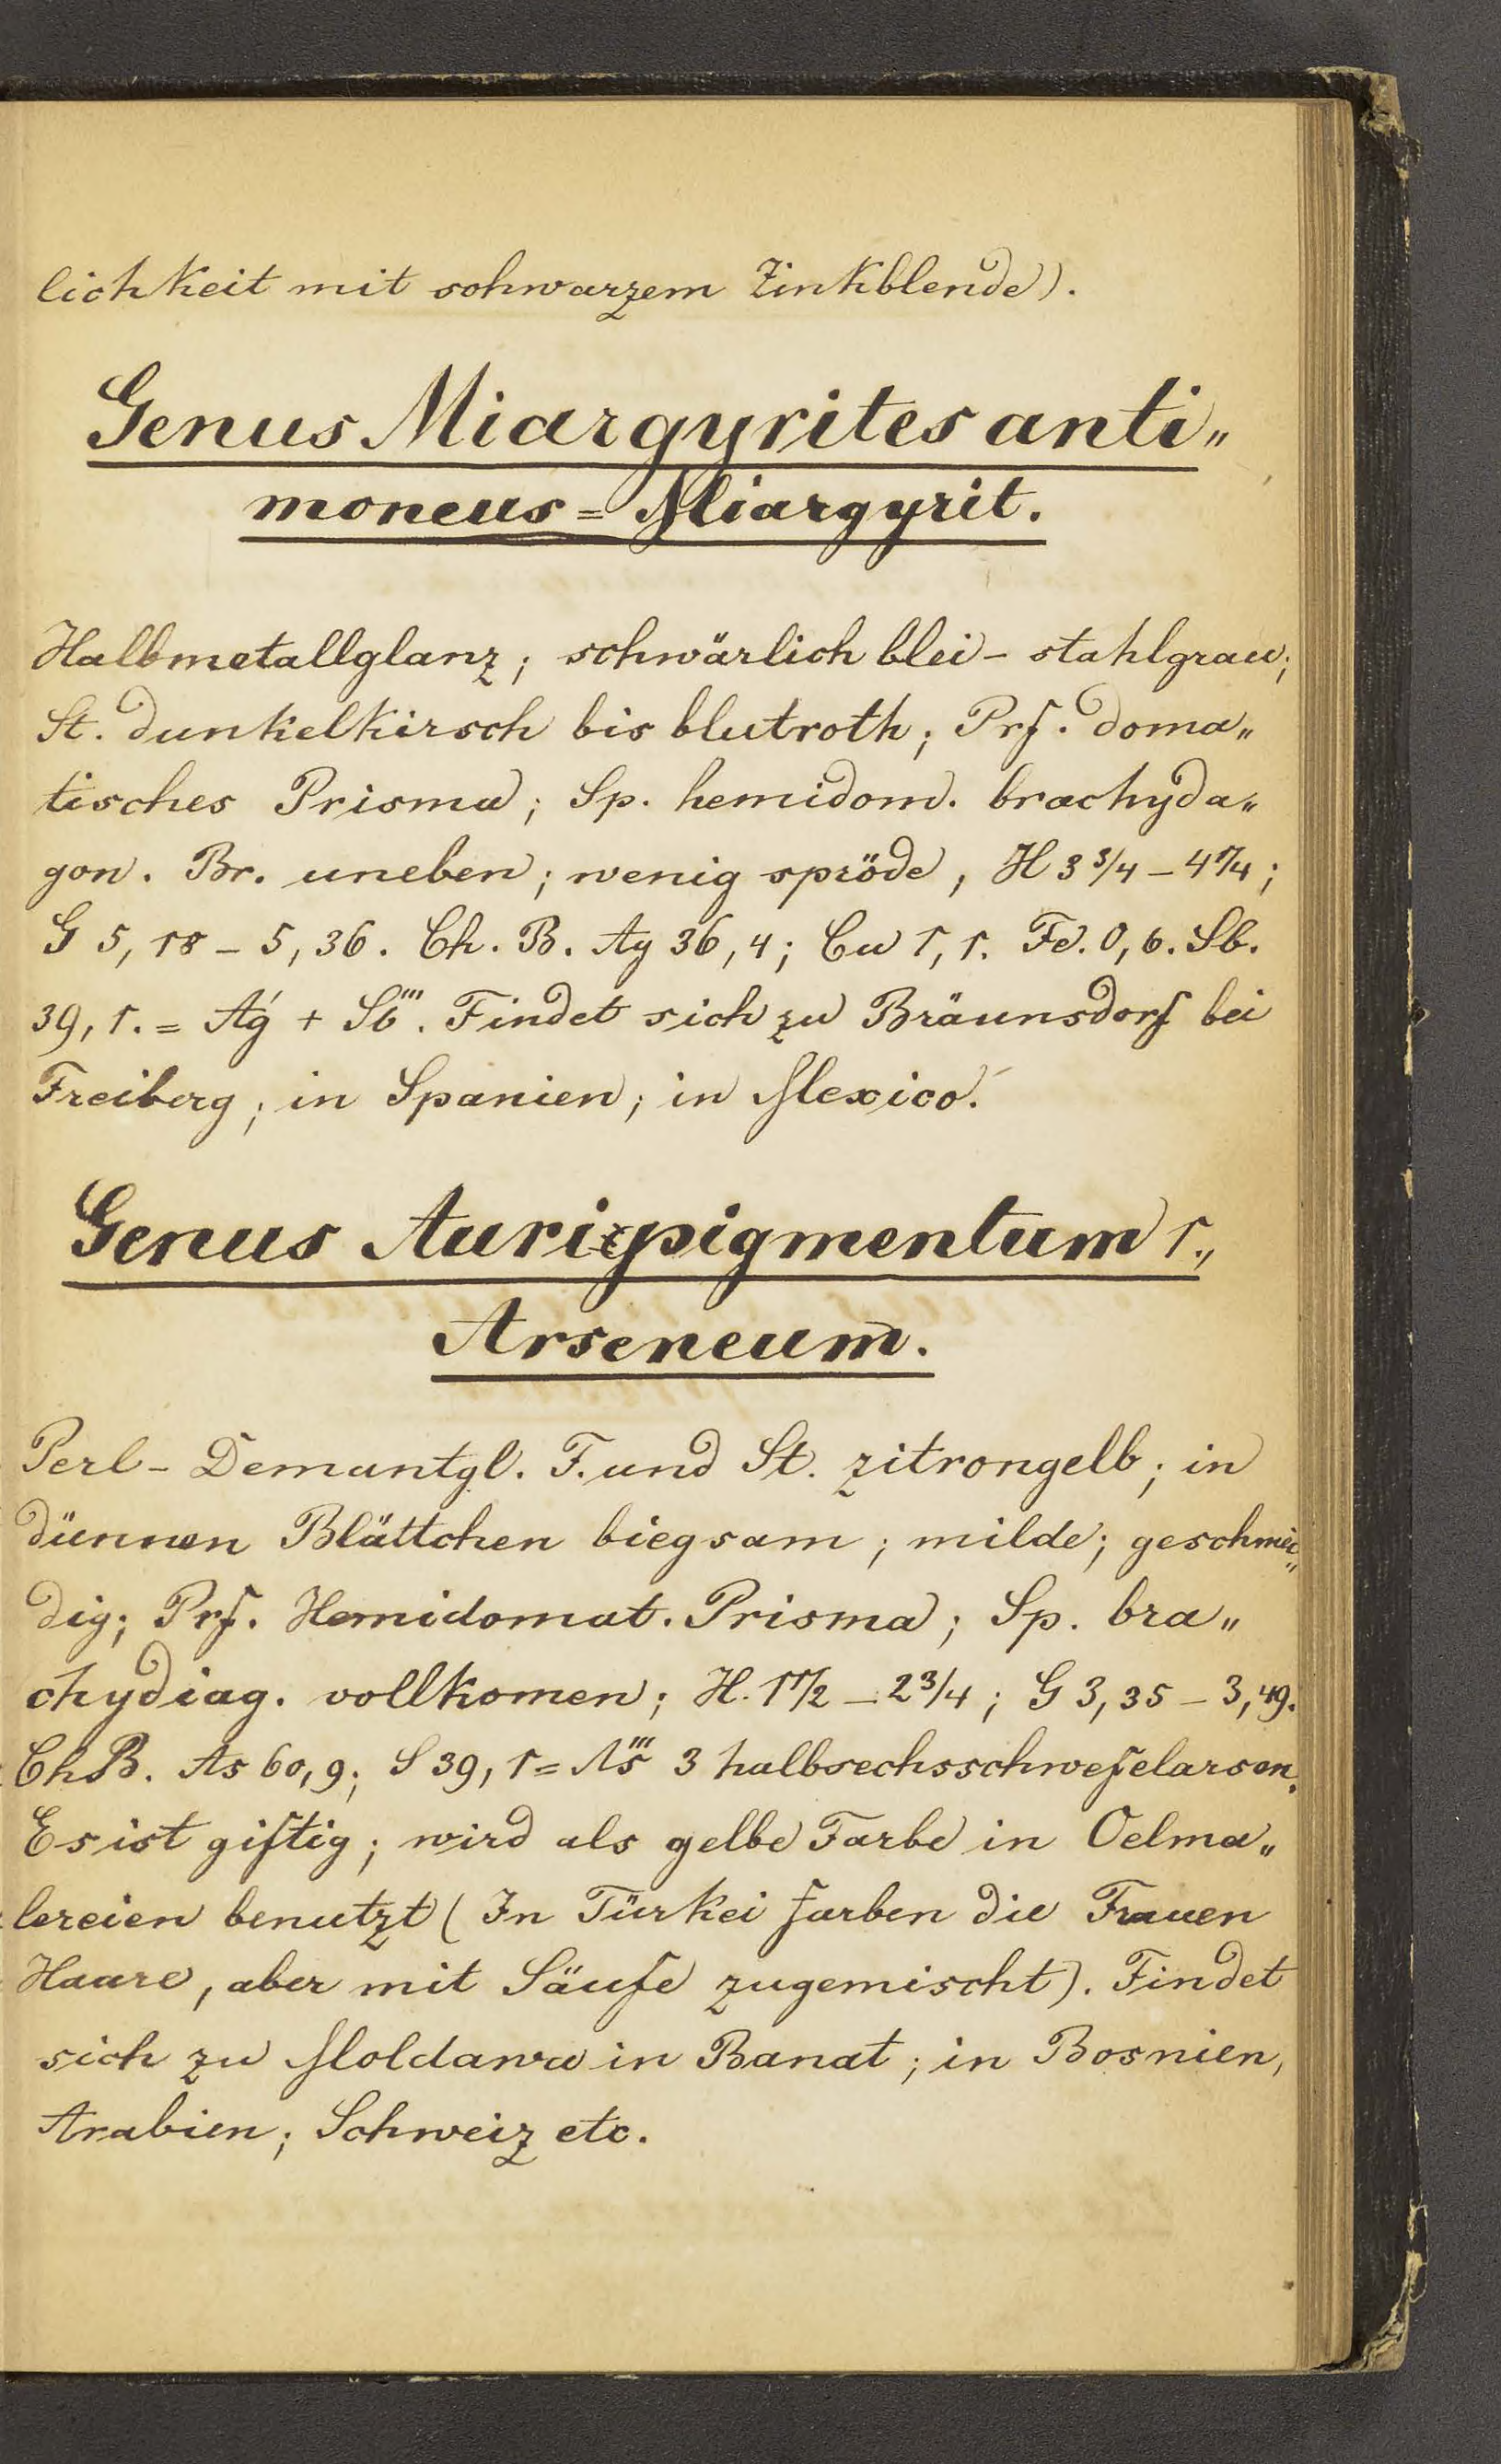 lichkeit mit schwarzem Zinkblende).
Genus Miargyrites anti„
moneus = Miargyrit.
Halbmetallglanz; schwärlich blei - stahlgrau;
St. dunkelkirsch bis blutroth; Prf. doma„
tisches Prisma; Sp. hemidom. brachyda„
gon. Br. uneben; wenig spröde, H 3 3/4 - 4 1/4;
G 5,18 - 5,36. Ch. B. Ag 36,4; Cu 1,1. Fe. 0,6. Sb.
39,1. = Ag' + Sb'''. Findet sich zu Bräunsdorf bei
Freiberg; in Spanien; in Mexico.
Genus Auripigmentum 1.,
Arseneum.
Perl - Demantgl. F. und St. zitrongelb; in
dünnen Blättchen biegsam; milde; geschmei„
dig; Prf. Hemidomat. Prisma; Sp. bra„
chydiag. vollkomen; H. 1 1/2 - 2 3/4; G 3,35 - 3,49.
Ch B. As 60,9; S 39,1 = As''' 3 halbsechsschwefelarsen.
Es ist giftig; wird als gelbe Farbe in Oelma„
lereien benutzt (In Türkei farben die Frauen
Haare, aber mit Säufe zugemischt). Findet
sich zu Moldawa in Banat; in Bosnien,
Arabien; Schweiz etc.